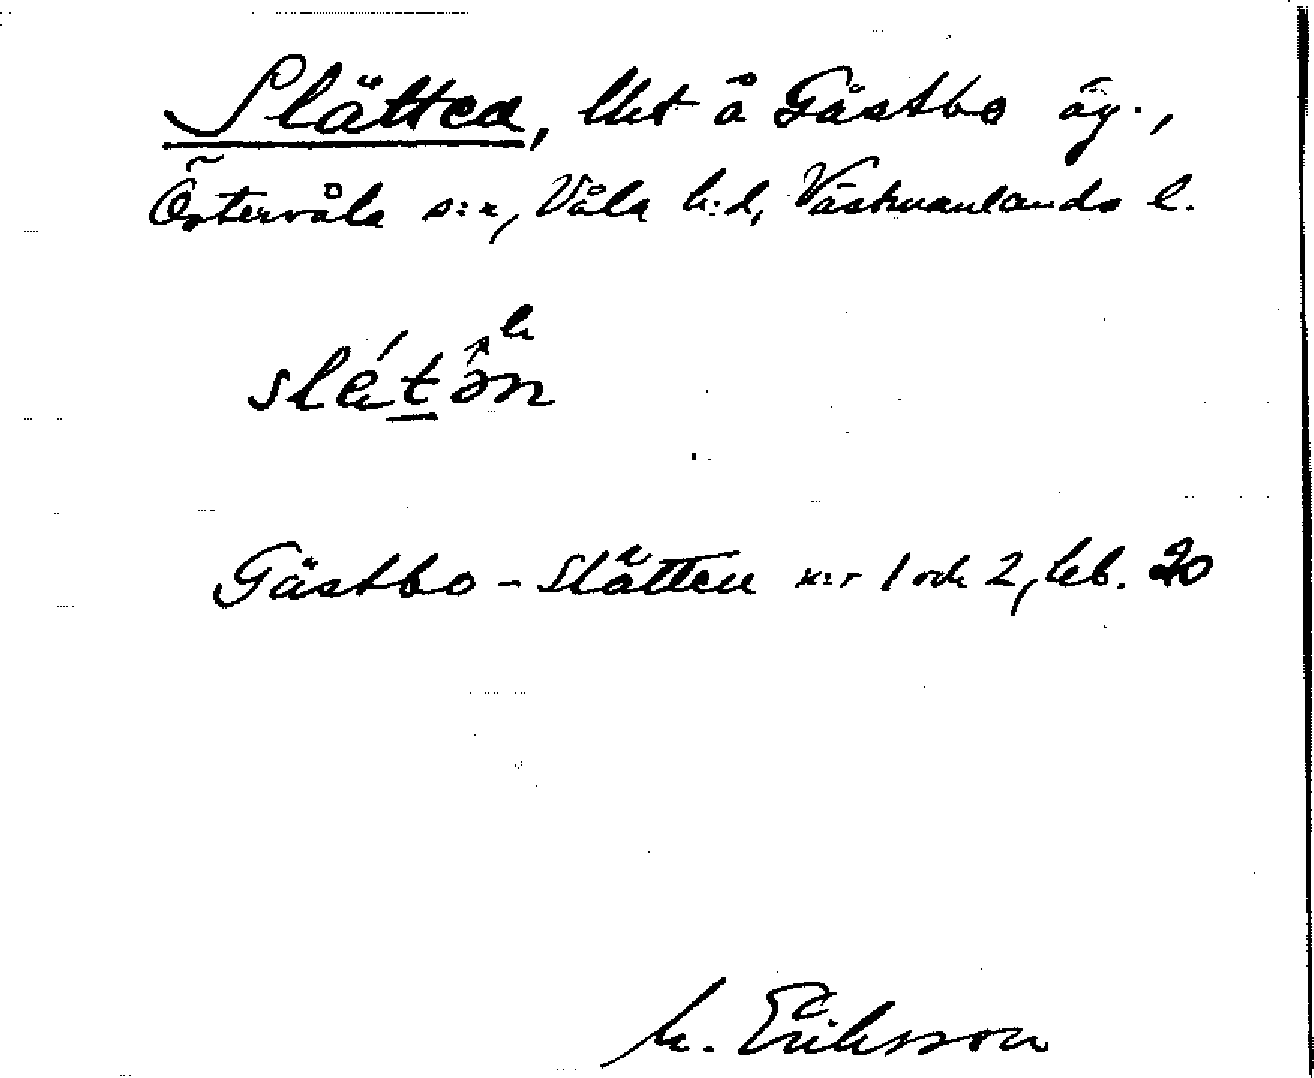 Slätten, lht å Gästbo äg.,
Östervåla s:n, Våla h:d, Västmanlands l.
Gästbo-Slätten n:r 1 och 2, leb. 20
M. Eriksson